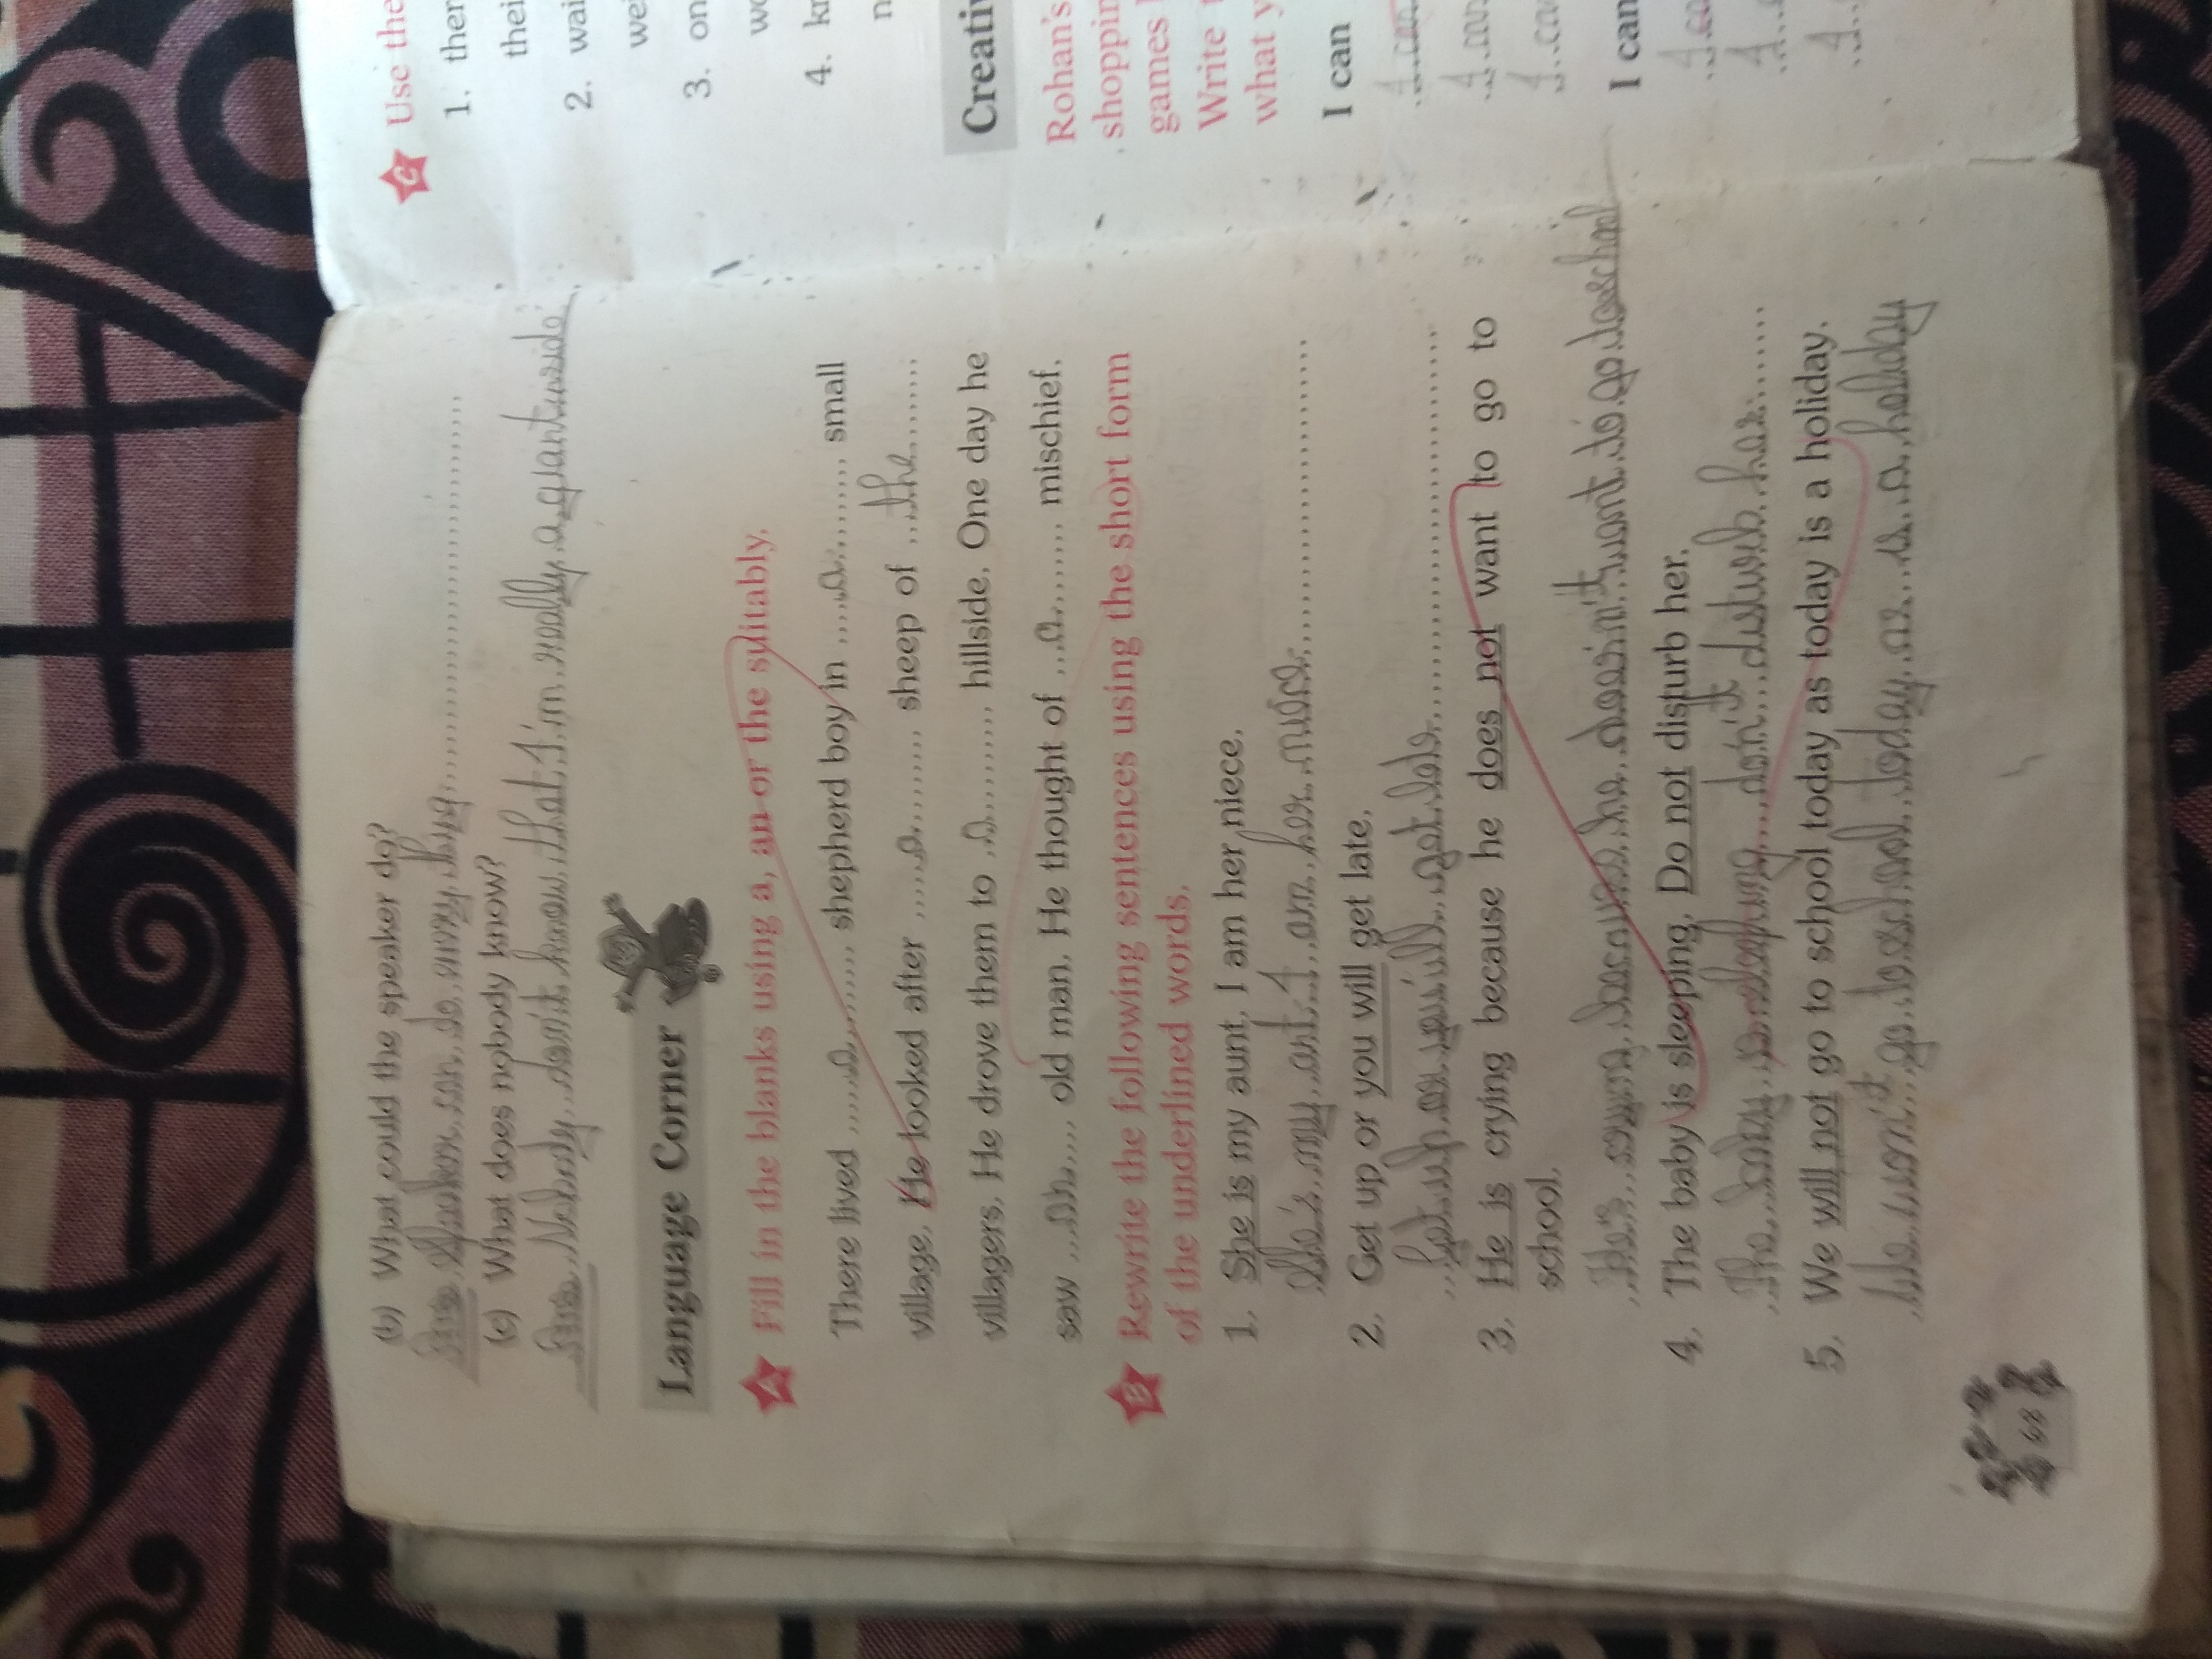 (b) What could the speaker do?
Ans. Speaker can do every thing.
(c) What does nobody know?
Ans. Nobody don't know that I'm really a giant inside.
Language Corner
A Fill in the blanks using a, an or the suitably.
There lived ......a......... shepherd boy in .....a......... small
village. He looked after .....a......... sheep of ...the.........
villagers. He drove them to .a........... hillside. One day he
saw ...an...... old man. He thought of ...a........ mischief.
B Rewrite the following sentences using the short form
of the underlined words.
1. She is my aunt. I am her niece.
She's my ant. I am her niece.
2. Get up or you will get late.
Get up or you'll get late.
3. He is crying because he does not want to go to
school.
He's because he doesn't want to go to school
4. The baby is sleeping. Do not disturb her.
The baby don't disturb her.
5. We will not go to school today as today is a holiday.
We won't go to school today as is a holiday
68
C Use the
1. ther
thei
2. wai
wei
3. on
wo
4. kr
n
Creativ
Rohan's
shoppin
games
Write
what y
I can
I can
I can
I can
I can
I ca
I
I